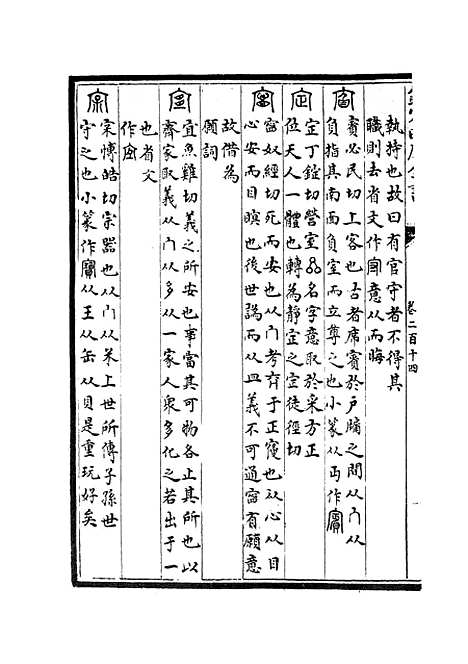 卷二百十四
執持也故曰有官守者不得其
職則去省文作意从而晦
賓必民切上客也古者席賓於戶牖之間从宀从
負指其南面負室而立尊之也小篆从丏作賓
定丁錠切營室名字意取於采方正
位天人一體也轉為靜定之定徒徑切
甯奴經切死而安也从宀考齊于正寢也从心从目
心安而目瞑也後世譌而从皿義不可通甯有願意
故借為
願詞
宜魚雞切義之所安也事當其可物各止其所也以
齊家取義从宀从多从一家人衆多化之若出于一
也省文
作
宲博皓切宗器也从宀从釆上世所傳子孫世
守之也小篆作寶从王从缶从貝是重玩好矣